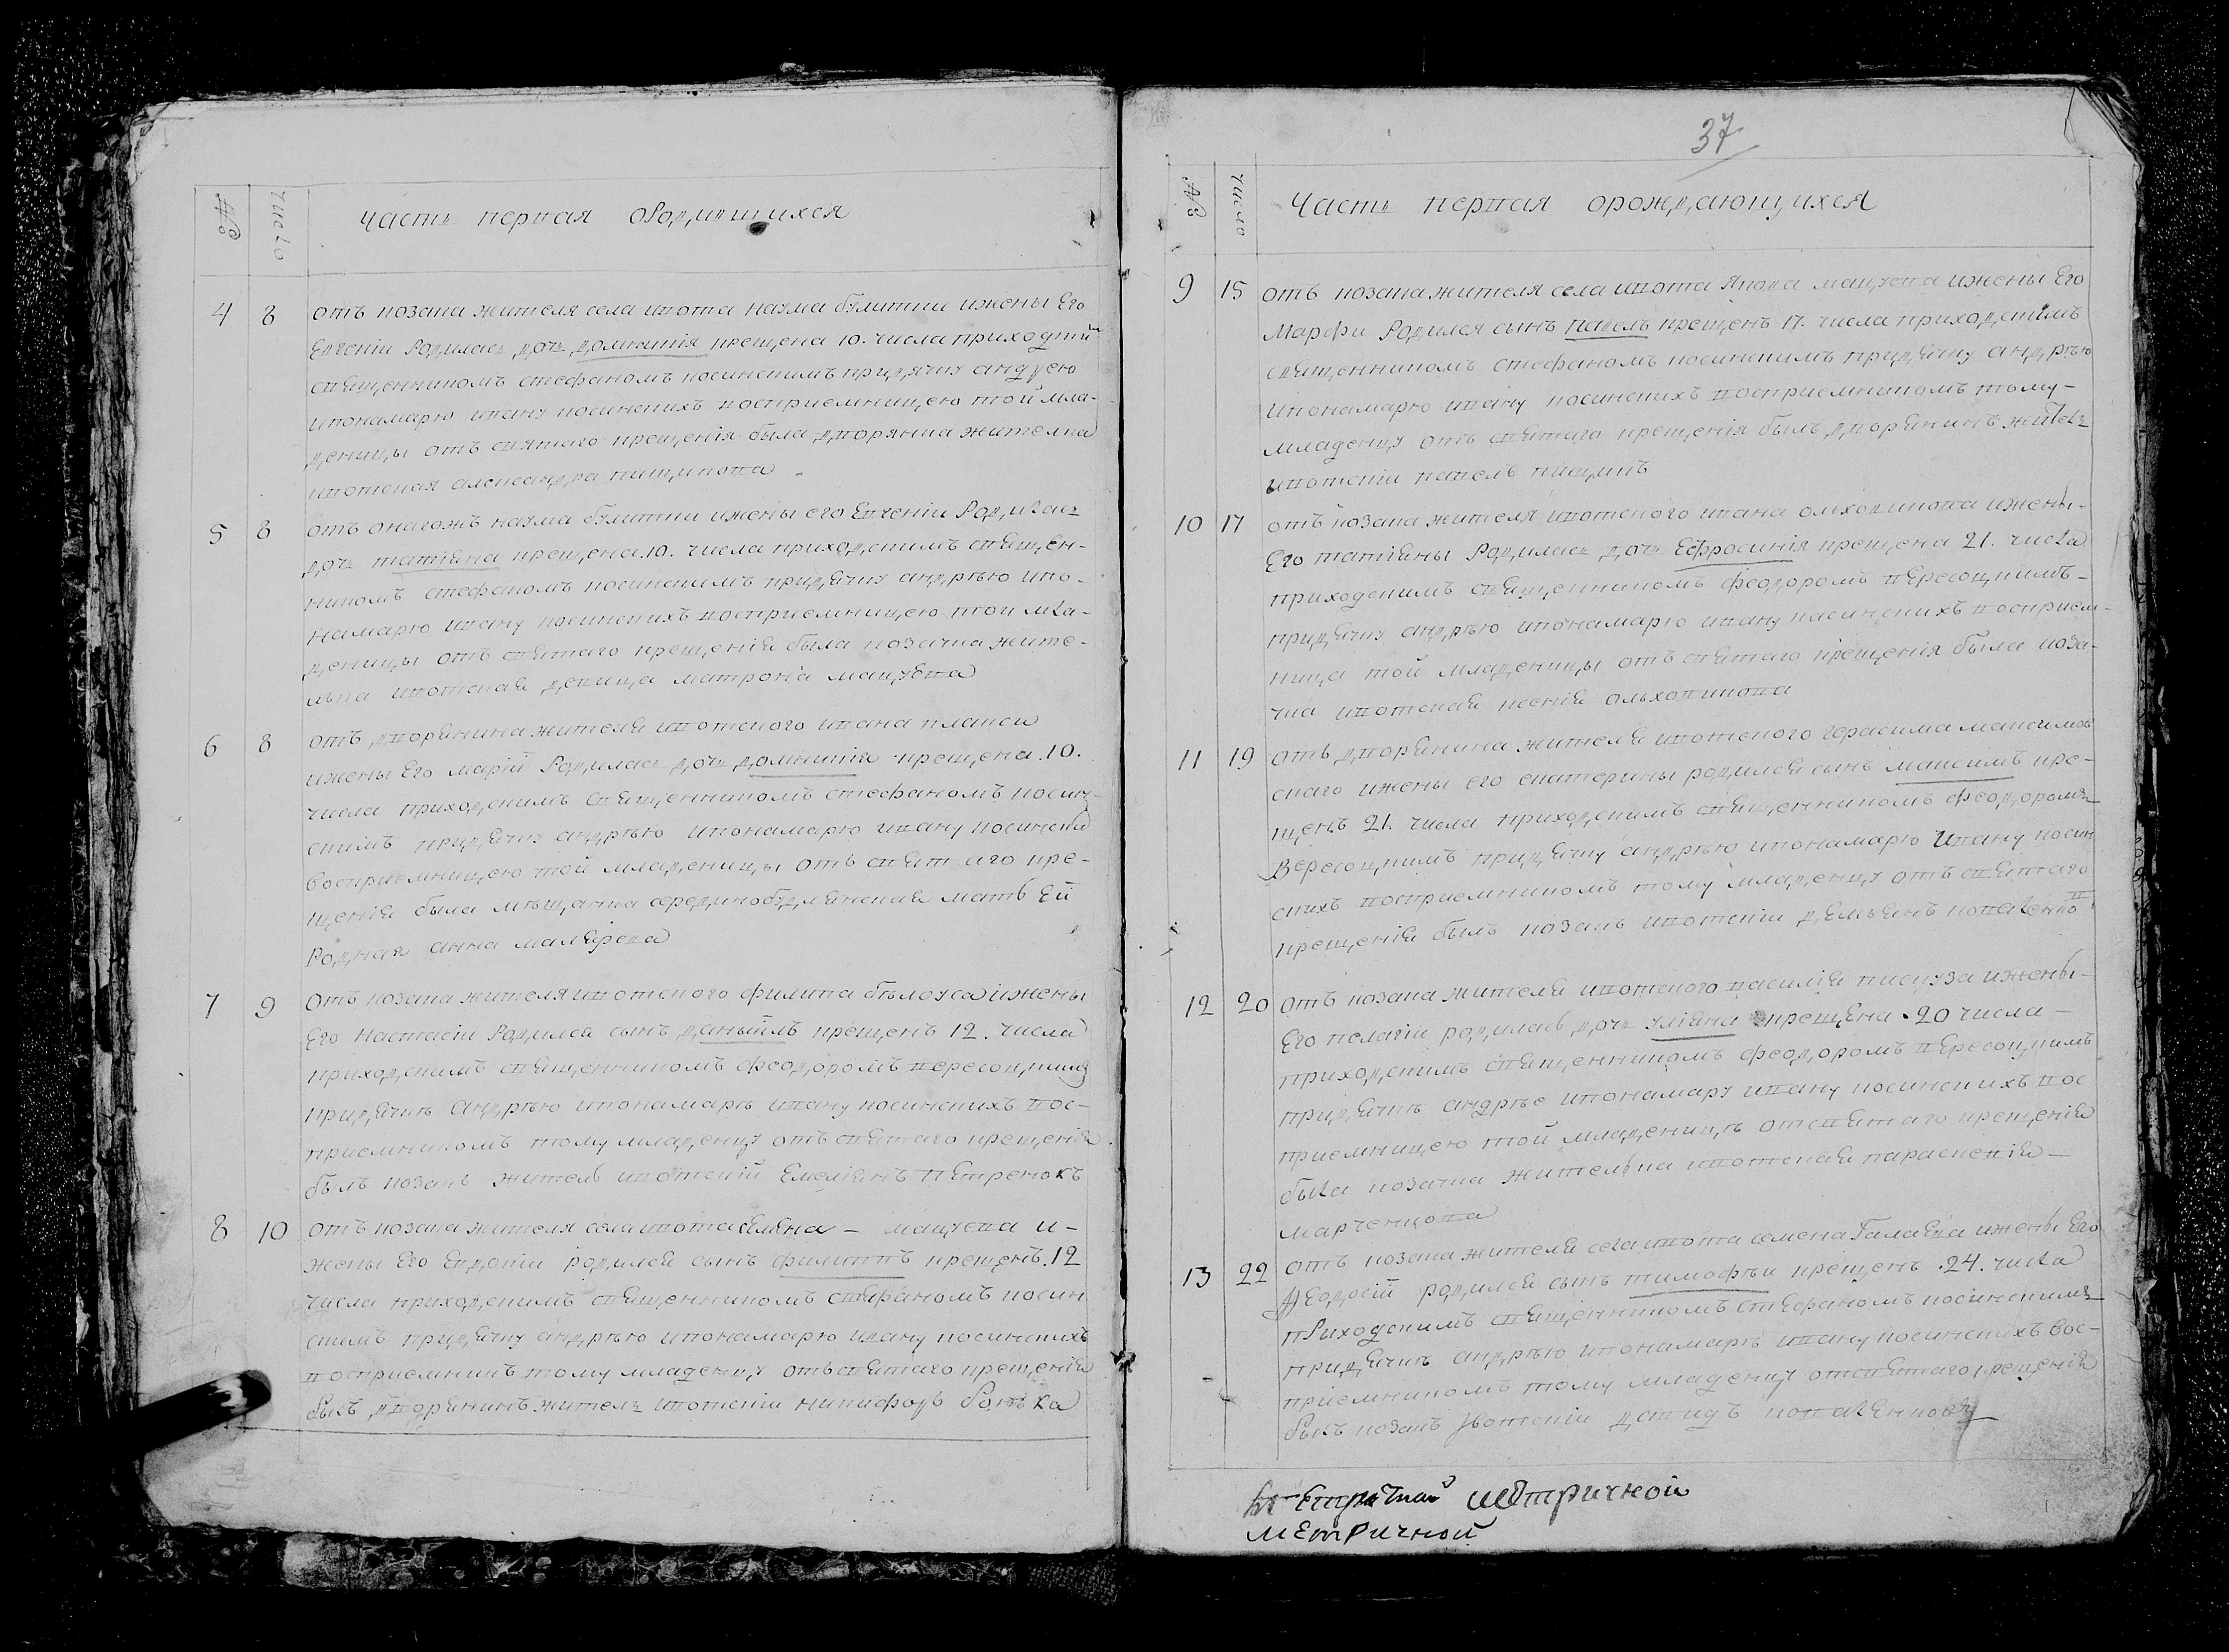 № число часть первая ородившихся
4 8 отъ козака жителя села ивота наума булитки ижены Его
Евгеніи Родилась дочь домникія крещена 10. числа приходски
священникомъ стефаномъ косинскимъ при дячку андрею
ипонамарю ивану косинскихъ восприемницею той мла-
деницы отъ святаго крещенія была дворянка жителка
ивотская александра пищикова
5 8 отъ онагожъ наума булитки ижены его Евгеніи Родилась
дочь татіяна крещена.10. числа приходскимъ священ-
никомъ стефаномъ косинскимъ придячку андрѣю ипо-
намарю ивану косинскихъ восприемницею той мла-
деницы отъ святаго крещенія была козачка жите-
лька ивотская девица матрона мацуева
6 8 отъ дворянина жителя ивотского ивана плакси
ижены Его маріи Родилась дочь домникія крещена.10.
числа приходскимъ священникомъ стефаномъ косин-
скимъ придячку андрѣю ипонамарю ивану косински
восприемницею той младеницы отъ святаго кре-
щенія была мѣщанка серединобудянская мать Ей
Родная анна малярева
7 9 Отъ козака жителя ивотского филипа бѣлоуса ижены
Его Настасіи Родился сынъ даныилъ крещенъ 12. числа
приходскимъ священникомъ феодоромъ вересоцкимъ
придячкѣ андрѣю ипонамарѣ ивану косинскихъ вос-
приемникомъ тому младенцу отъ святаго крещенія
былъ козакъ житель ивотскій Емеліянъ Петренокъ
8 10 отъ козака жителя села ивота Емеляна – мацуева и-
жены Его Евдокіи родился сынъ филиппъ крещенъ.12
числа приходскимъ священникомъ стефаномъ косин
скимъ придячку андрѣю ипонамарю ивану косинскихъ
восприемникъ тому младенцу отъ святаго крещенія
былъ дворянинъ житель ивотскіи никифоръ
37
№ число Часть первая орождающихся
9 15 отъ козака жителя села ивота Якова мацуева ижены Его
Марфи Родился сынъ Павелъ крещенъ 17. числа приходскимъ
священникомъ стефаномъ косинскимъ придячку андрѣю
ипонамарю ивану косинскихъ восприемникомъ тому-
младенцу отъ святаго крещенія былъ дворянинъ житель
ивотскіи павелъ пищикъ
10 17 отъ козака жителя ивотского ивана ольховикова ижены-
Его татіяны Родилась дочь Ефросинія крещена 21. числа
приходскимъ священникомъ феодоромъ вересоцкимъ-
придячку андрѣю ипонамарю ивану касинскихъ восприем-
ница той младеницы отъ святаго крещенія была коза-
чка ивотская ксенія ольховикова
11 19 отъ дворянина жителя ивотского герасима максимов
скаго ижены его екатерины родился сынъ максимъ кре-
щенъ 21. числа приходскимъ священникомъ феодоромъ
Вересоцкимъ придячку андрѣю ипонамарю Ивану косин
скихъ восприемникомъ тому младенцу отъ святаго
крещенія былъ козакъ ивотскіи демьянъ коваленков
12 20 отъ козака жителя ивотского василія ижены-
Его пелагіи родилась дочь уліяна крещена .20 числа –
приходскимъ священникомъ феодоромъ вересоцкимъ
придячкѣ андрѣе ипонамару ивану косинскихъ вос
приемницею той младеницѣ отсвятаго крещенія
была козачка жителька ивотская параскевія –
марченкова
13 22 отъ козака жителя села ивота семена Галаева ижены Его
Феодосіи родился сынъ тимофѣи крещенъ .24. числа
приходскимъ священникомъ стефаномъ косинскимъ
придячкѣ андрѣю ипонамарѣ ивану косинскихъ вос-
пріемникомъ тому младенцу отсвятаго крещенія
былъ козакъ Ивотскіи давидъ коваленковъ
метричной
метричной